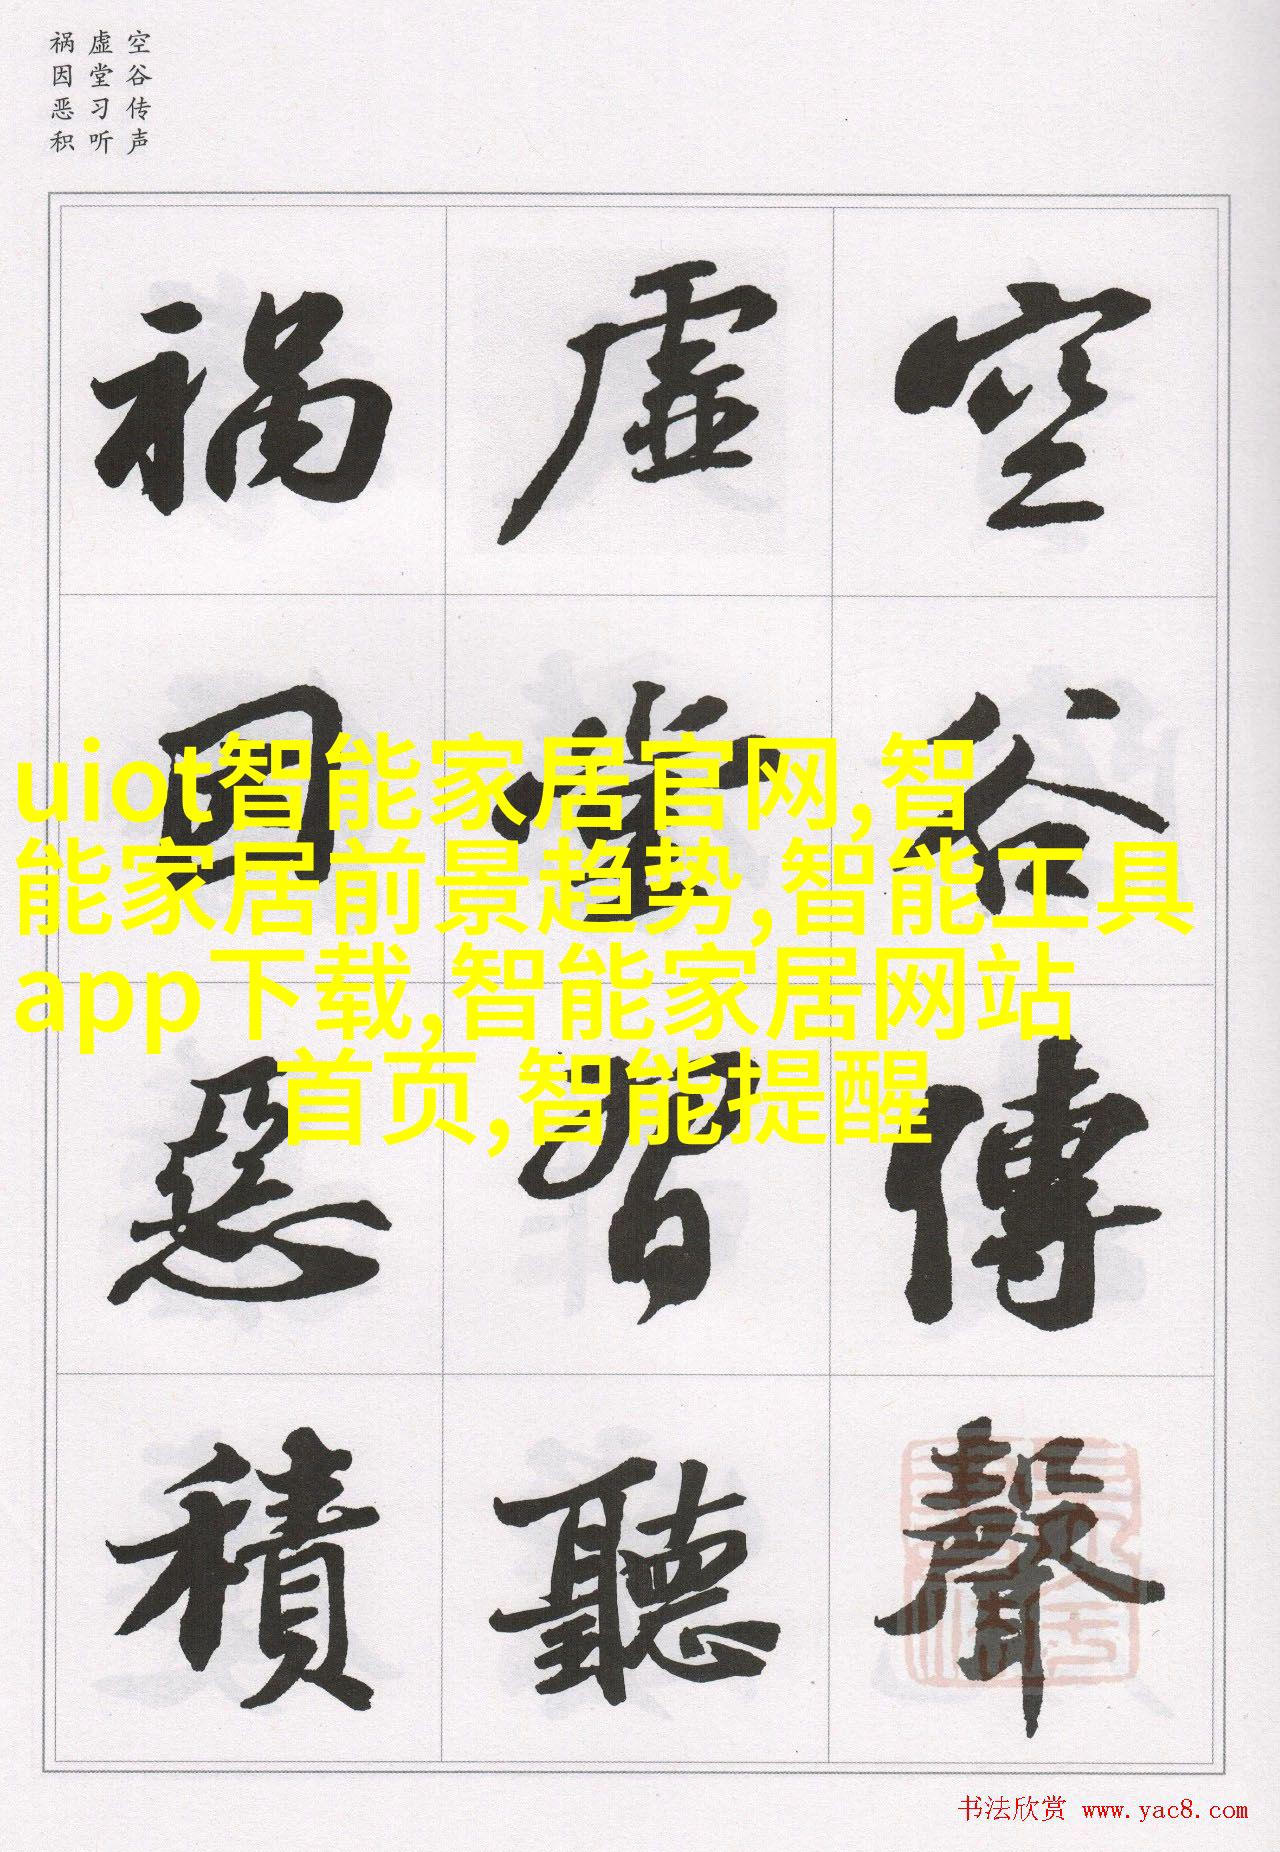 空谷传声
虚堂习听
祸因恶积
空谷傳聲
虚堂習聽
禍因惡積
uiot智能家居官网,智
能家居前景趋势,智能工具
app下载,智能家居网站
首页,智能提醒
书法欣赏 www.yac8.com